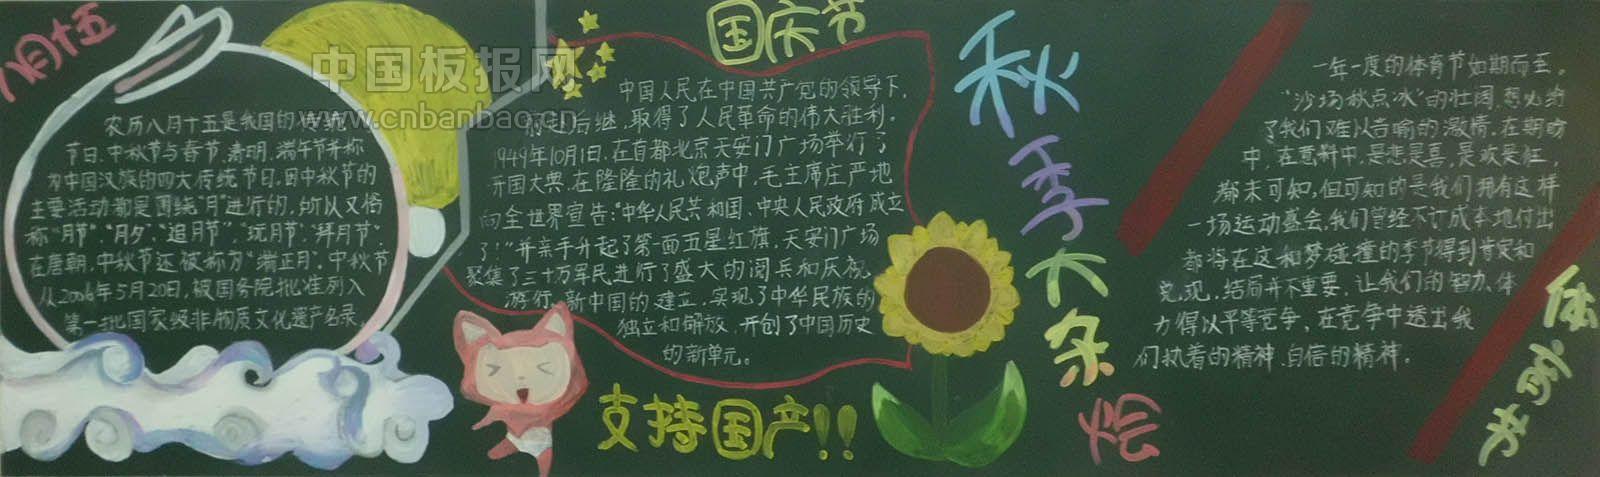 八月十五
农历八月十五是我国的传统
节日,中秋节与春节,清明,端午节并称
为中国汉族的四大传统节日,因中秋节的
主要活动都是围绕"月"进行的,所以又俗
称"月节","月夕","追月节","玩月节","拜月节",
在唐朝,中秋节还被称为"端正月",中秋节
从2006年5月20日,被国务院批准列入
第一批国家级非物质文化遗产名录。
中国板报网
www.cnbanbao.cn
国庆节
中国人民在中国共产党的领导下,
前赴后继,取得了人民革命的伟大胜利。
1949年10月1日,在首都北京天安门广场举行了
开国大典,在隆隆的礼炮声中,毛主席庄严地
向全世界宣告:"中华人民共和国、中央人民政府成立
了!"并亲手升起了第一面五星红旗,天安门广场
聚集了三十万军民进行了盛大的阅兵和庆祝
游行。新中国的建立,实现了中华民族的
独立和解放,开创了中国历史
的新单元。
支持国产!!
秋季大杂烩
一年一度的体育节如期而至。
"沙场秋点冰"的壮阔,想必给
了我们难以言喻的激情,在期盼
中,在意料中,是悲是喜,是哀是狂,
都未可知,但可知的是我们拥有这样
一场运动盛会,我们曾经不计成本地付出
都将在这和梦碰撞的季节得到肯定和
兑现,结局并不重要,让我们的智力、体
力得以平等竞争,在竞争中透出我
们执着的精神、自信的精神。
体育节